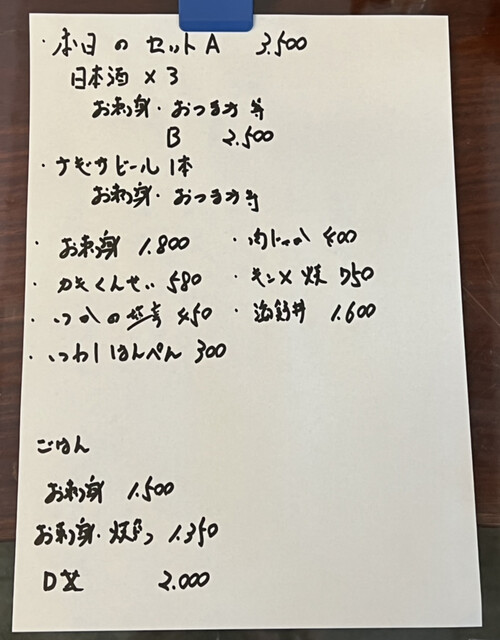 ・本日のセットA 3.500
日本酒×3
お刺身・おつまみ等
B 2.500
・ナギサビール1本
お刺身・おつまみ等
・お刺身 1.800
・肉じゃが 400
・カキくんせい 580
・キンメ焼 750
・いかの 450
・海鮮丼 1.600
・いわしはんぺん 300
ごはん
お刺身 1.500
お刺身・焼 1.350
DX 2.000